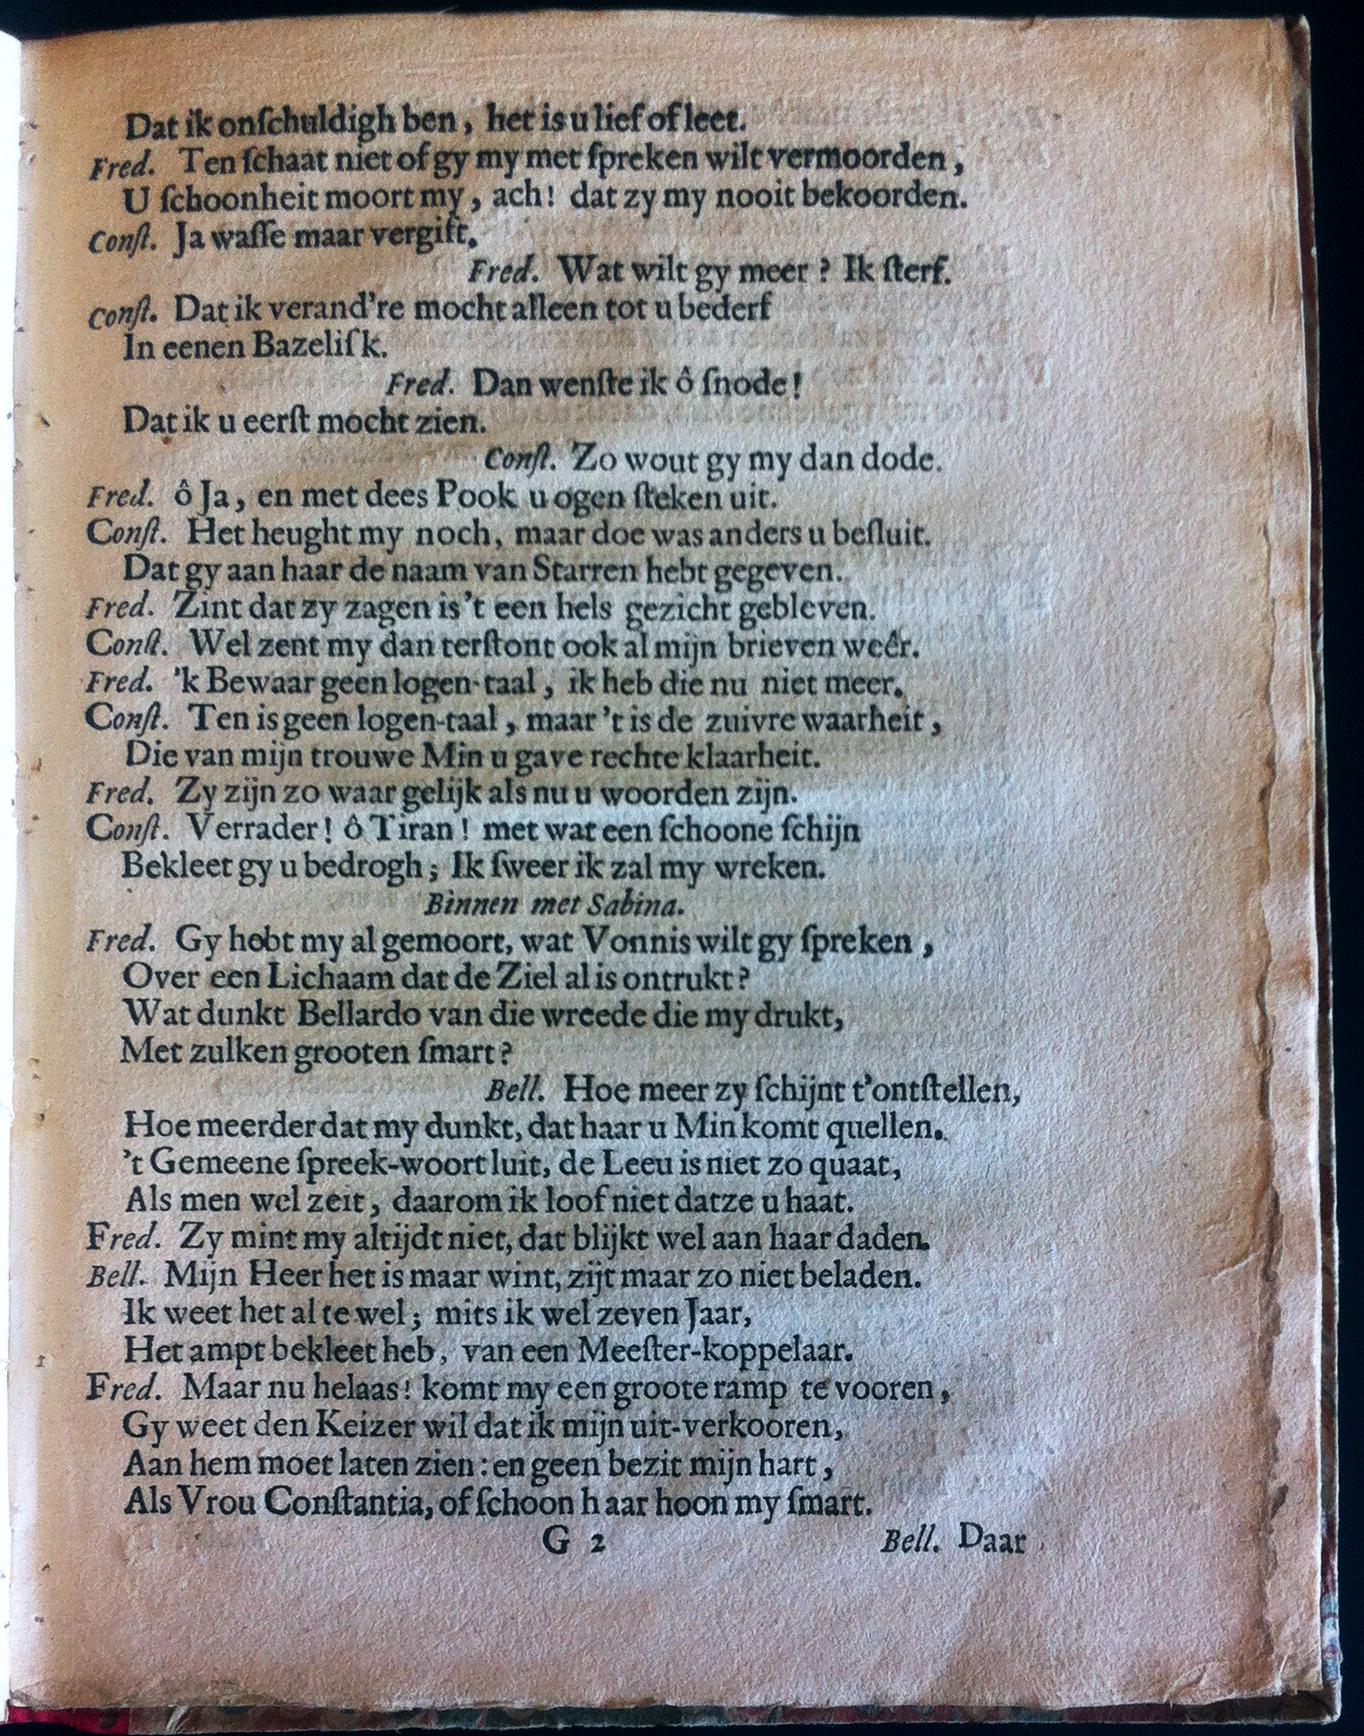 Dat ik onſchuldigh ben, het is u lief of leet.
Fred. Ten ſchaat niet of gy my met ſpreken wilt vermoorden,
U ſchoonheit moort my, ach! dat zy my nooit bekoorden.
Conſt. Ja waſſe maar vergift.
Fred. Wat wilt gy meer? Ik ſterf.
Conſt. Dat ik verand're mocht alleen tot u bederf
In eenen Bazeliſk.
Fred. Dan wenſte ik ô ſnode!
Dat ik u eerſt mocht zien.
Conſt. Zo wout gy my dan dode.
Fred. ô Ja, en met dees Pook u ogen ſteken uit.
Conſt. Het heught my noch, maar doe was anders u beſluit.
Dat gy aan haar de naam van Starren hebt gegeven.
Fred. Zint dat zy zagen is't een hels gezicht gebleven.
Conſt. Wel zent my dan terſtont ook al mijn brieven weêr.
Fred. 'k Bewaar geen logen-taal, ik heb die nu niet meer.
Conſt. Ten is geen logen-taal, maar 't is de zuivre waarheit,
Die van mijn trouwe Min u gave rechte klaarheit.
Fred. Zy zijn zo waar gelijk als nu u woorden zijn.
Conſt. Verrader! ô Tiran! met wat een ſchoone ſchijn
Bekleet gy u bedrogh; Ik ſweer ik zal my wreken.
Binnen met Sabina.
Fred. Gy hebt my al gemoort, wat Vonnis wilt gy ſpreken,
Over een Lichaam dat de Ziel al is ontrukt?
Wat dunkt Bellardo van die wreede die my drukt,
Met zulken grooten ſmart?
Bell. Hoe meer zy ſchijnt t'ontſtellen,
Hoe meerder dat my dunkt, dat haar u Min komt quellen.
't Gemeene ſpreek-woort luit, de Leeu is niet zo quaat,
Als men wel zeit, daarom ik loof niet datze u haat.
Fred. Zy mint my altijdt niet, dat blijkt wel aan haar daden.
Bell. Mijn Heer het is maar wint, zijt maar zo niet beladen.
Ik weet het al te wel; mits ik wel zeven Jaar,
Het ampt bekleet heb, van een Meeſter-koppelaar.
Fred. Maar nu helaas! komt my een groote ramp te vooren,
Gy weet den Keizer wil dat ik mijn uit-verkooren,
Aan hem moet laten zien: en geen bezit mijn hart,
Als Vrou Conſtantia, of ſchoon h aar hoon my ſmart.
G 2 Bell. Daar